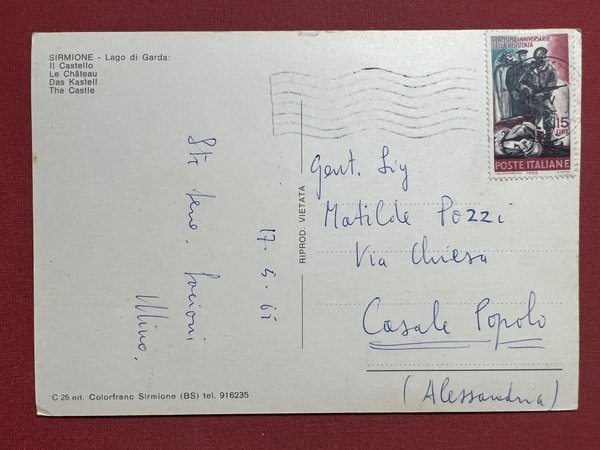 SIRMIONE - Lago di Garda:
Il Castello
Le Château
Das Kastell
The Castle
VENTESIMO ANNIVERSARIO
DELLA RESISTENZA
15
LIRE
POSTE ITALIANE
RIPROD. VIETATA
Gent. Sig
Matilde Pozzi
Via Chiesa
Casale Popolo
(Alessandria)
17-
bene.
C 26 ed. Colorfranc Sirmione (BS) tel. 916235